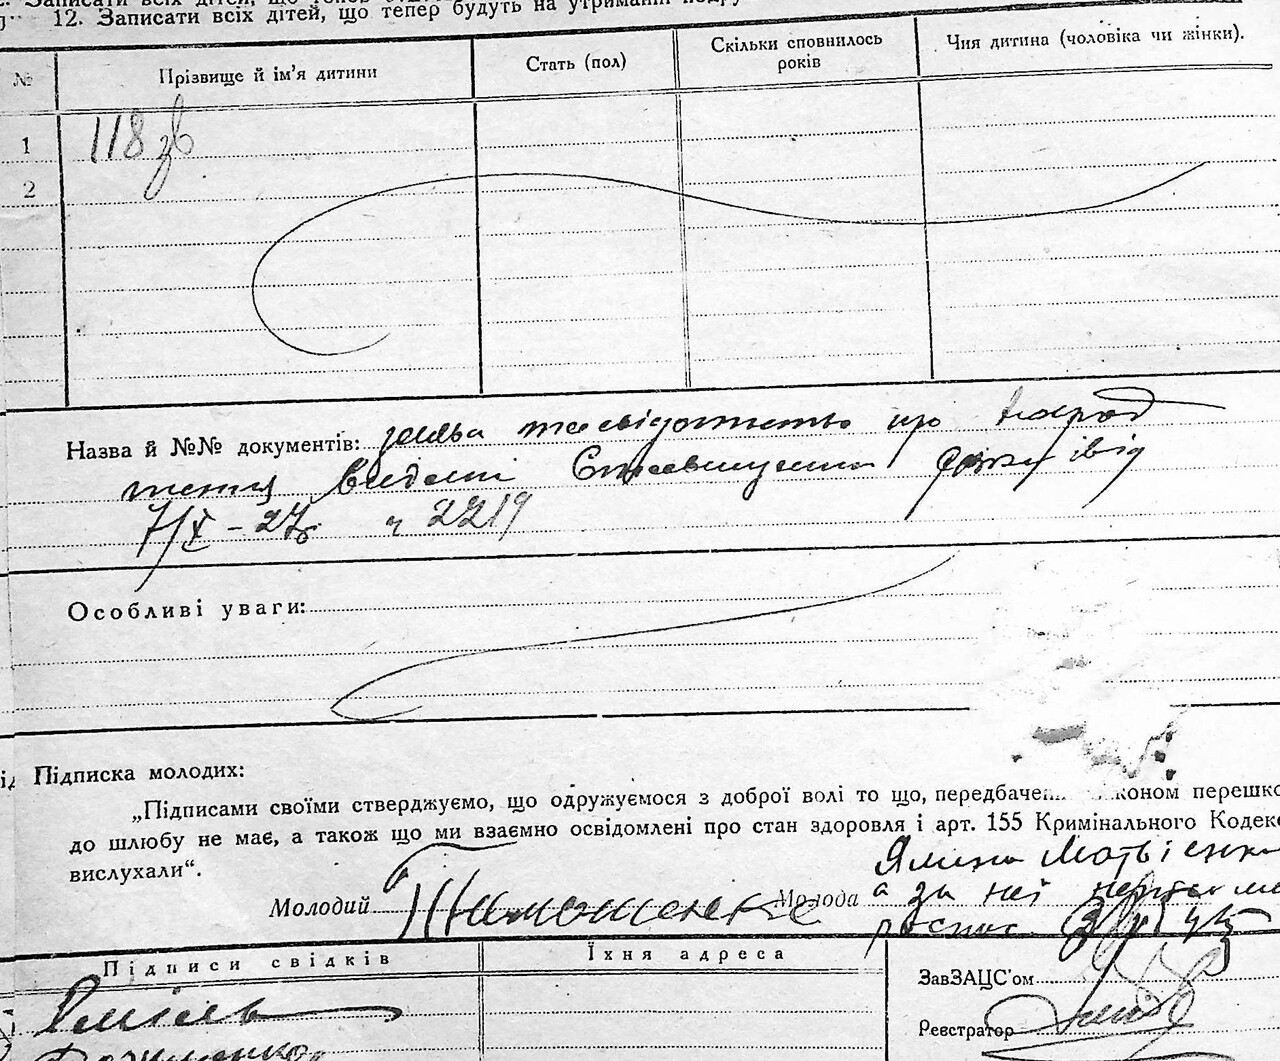 12. Записати всіх дітей, що тепер будуть на утриманні
№ Прізвище й ім'я дитини Стать (пол) Скільки сповнилось років Чия дитина (чоловіка чи жінки).
1 118 зв
2
Назва й №№ документів: заява та свідоцтво про народ
ження видані Ставищенським від
7/X – 27 р ч 2219
Особливі уваги:
Підписка молодих:
„Підписами своїми стверджуємо, що одружуємося з доброї волі то що, передбачен коном перешко
до шлюбу не має, а також що ми взаємно освідомлені про стан здоровля і арт. 155 Кримінального Кодекс
вислухали“.
Молодий Тимошенко Молода Ялина Матвієнко
а за неї негра
роспис
Підписи свідків Їхня адреса
ЗавЗАЦС'ом
Реєстратор